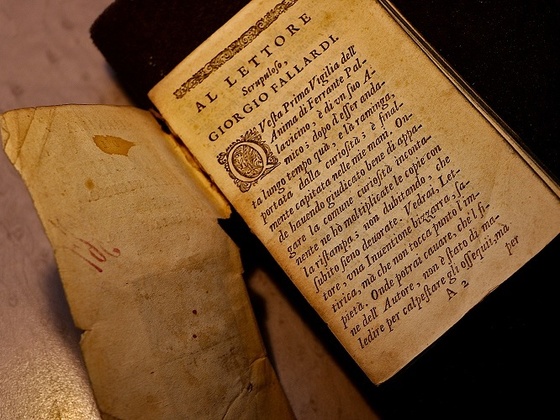 AL LETTORE
Scrupuloso,
GIORGIO FALLARDI.
QVesta Prima Vigilia dell'
Anima di Ferrante Pal-
lavicino, è di vn suo A-
mico; dopò d'esser anda-
ta lungo tempo quà, e là raminga,
portata dalla curiosità; è final-
mente capitata nelle mie mani. On-
de hauendo giudicato bene di appa-
gare la comune curiosità incontra-
nente ne hò moltiplicate le copie con
la ristampa; non dubitando, che
subito sieno deuorate. Vedrai, Let-
tore, vna Inuentione bizzerra, sa-
tirica, mà che non tocca punto l'im-
pietà. Onde potrai cauare, che'l fi-
ne dell' Autore, non è stato di ma-
ledire per calpestare gli ossequii, mà
A 2
per